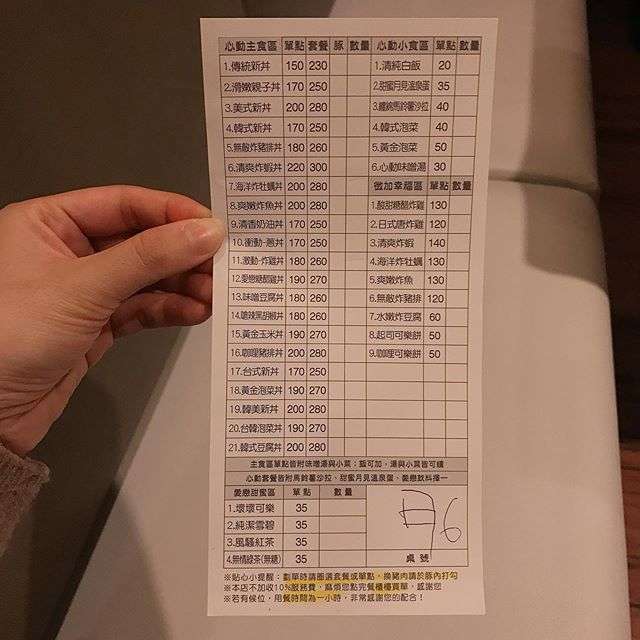 心動主食區 單點 套餐 豚 數量
1.傳統新丼 150 230
2.滑嫩親子丼 170 250
3.美式新丼 200 280
4.韓式新丼 170 250
5.無敵炸豬排丼 180 260
6.清爽炸蝦丼 220 300
7.海洋炸牡蠣丼 200 280
8.爽嫩炸魚丼 200 280
9.清香奶油丼 170 250
10.衝動-蔥丼 170 250
11.激動-炸雞丼 180 260
12.愛戀糖醋雞丼 190 270
13.味噌豆腐丼 180 260
14.嗆辣黑胡椒丼 180 260
15.黃金玉米丼 190 270
16.咖哩豬排丼 200 280
17.台式新丼 170 250
18.黃金泡菜丼 190 270
19.韓美新丼 200 280
20.台韓泡菜丼 190 270
21.韓式豆腐丼 200 280
心動小食區 單點 數量
1.清純白飯 20
2.甜蜜月見溫泉蛋 35
3.纖綿馬鈴薯沙拉 40
4.韓式泡菜 40
5.黃金泡菜 50
6.心動味噌湯 30
微加幸福區 單點 數量
1.酸甜糖醋炸雞 130
2.日式唐炸雞 120
3.清爽炸蝦 140
4.海洋炸牡蠣 130
5.爽嫩炸魚 130
6.無敵炸豬排 120
7.水嫩炸豆腐 60
8.起司可樂餅 50
9.咖哩可樂餅 50
主食區單點皆附味噌湯與小菜；飯可加，湯與小菜皆可續
心動套餐皆附馬鈴薯沙拉、甜蜜月見溫泉蛋、愛戀飲料擇一
愛戀甜蜜區 單點 數量
1.壞壞可樂 35
2.純潔雪碧 35
3.風騷紅茶 35
4.無情綠茶(無糖) 35
桌號
※貼心小提醒：劃單時請圈選套餐或單點，換豬肉請於豚內打勾
※本店不加收10%服務費，麻煩您點完餐櫃檯買單，感謝您
※若有候位，用餐時間為一小時，非常感謝您的配合！